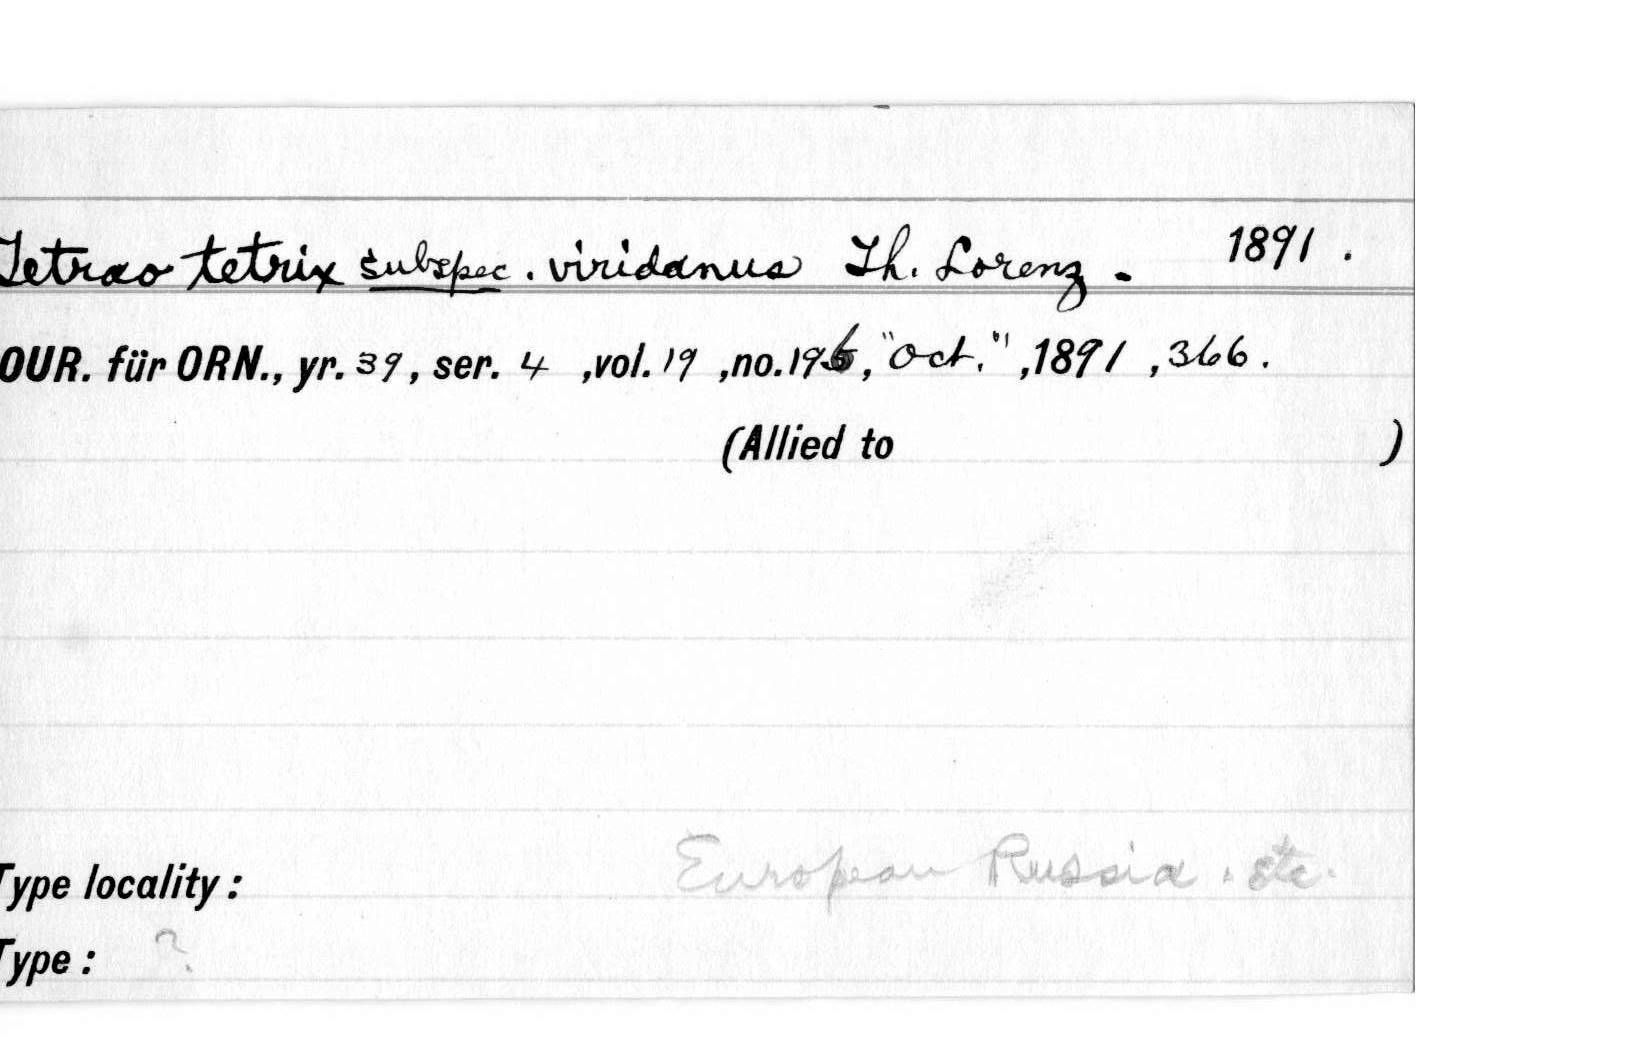 Tetrao tetrix subspec. viridanus Th. Lorenz. 1891.
OUR. für ORN., yr. 39, ser. 4 ,vol. 19 ,no. 196, "Oct." ,1891 ,366.
(Allied to )
Type locality: European Russia. etc.
Type: ?